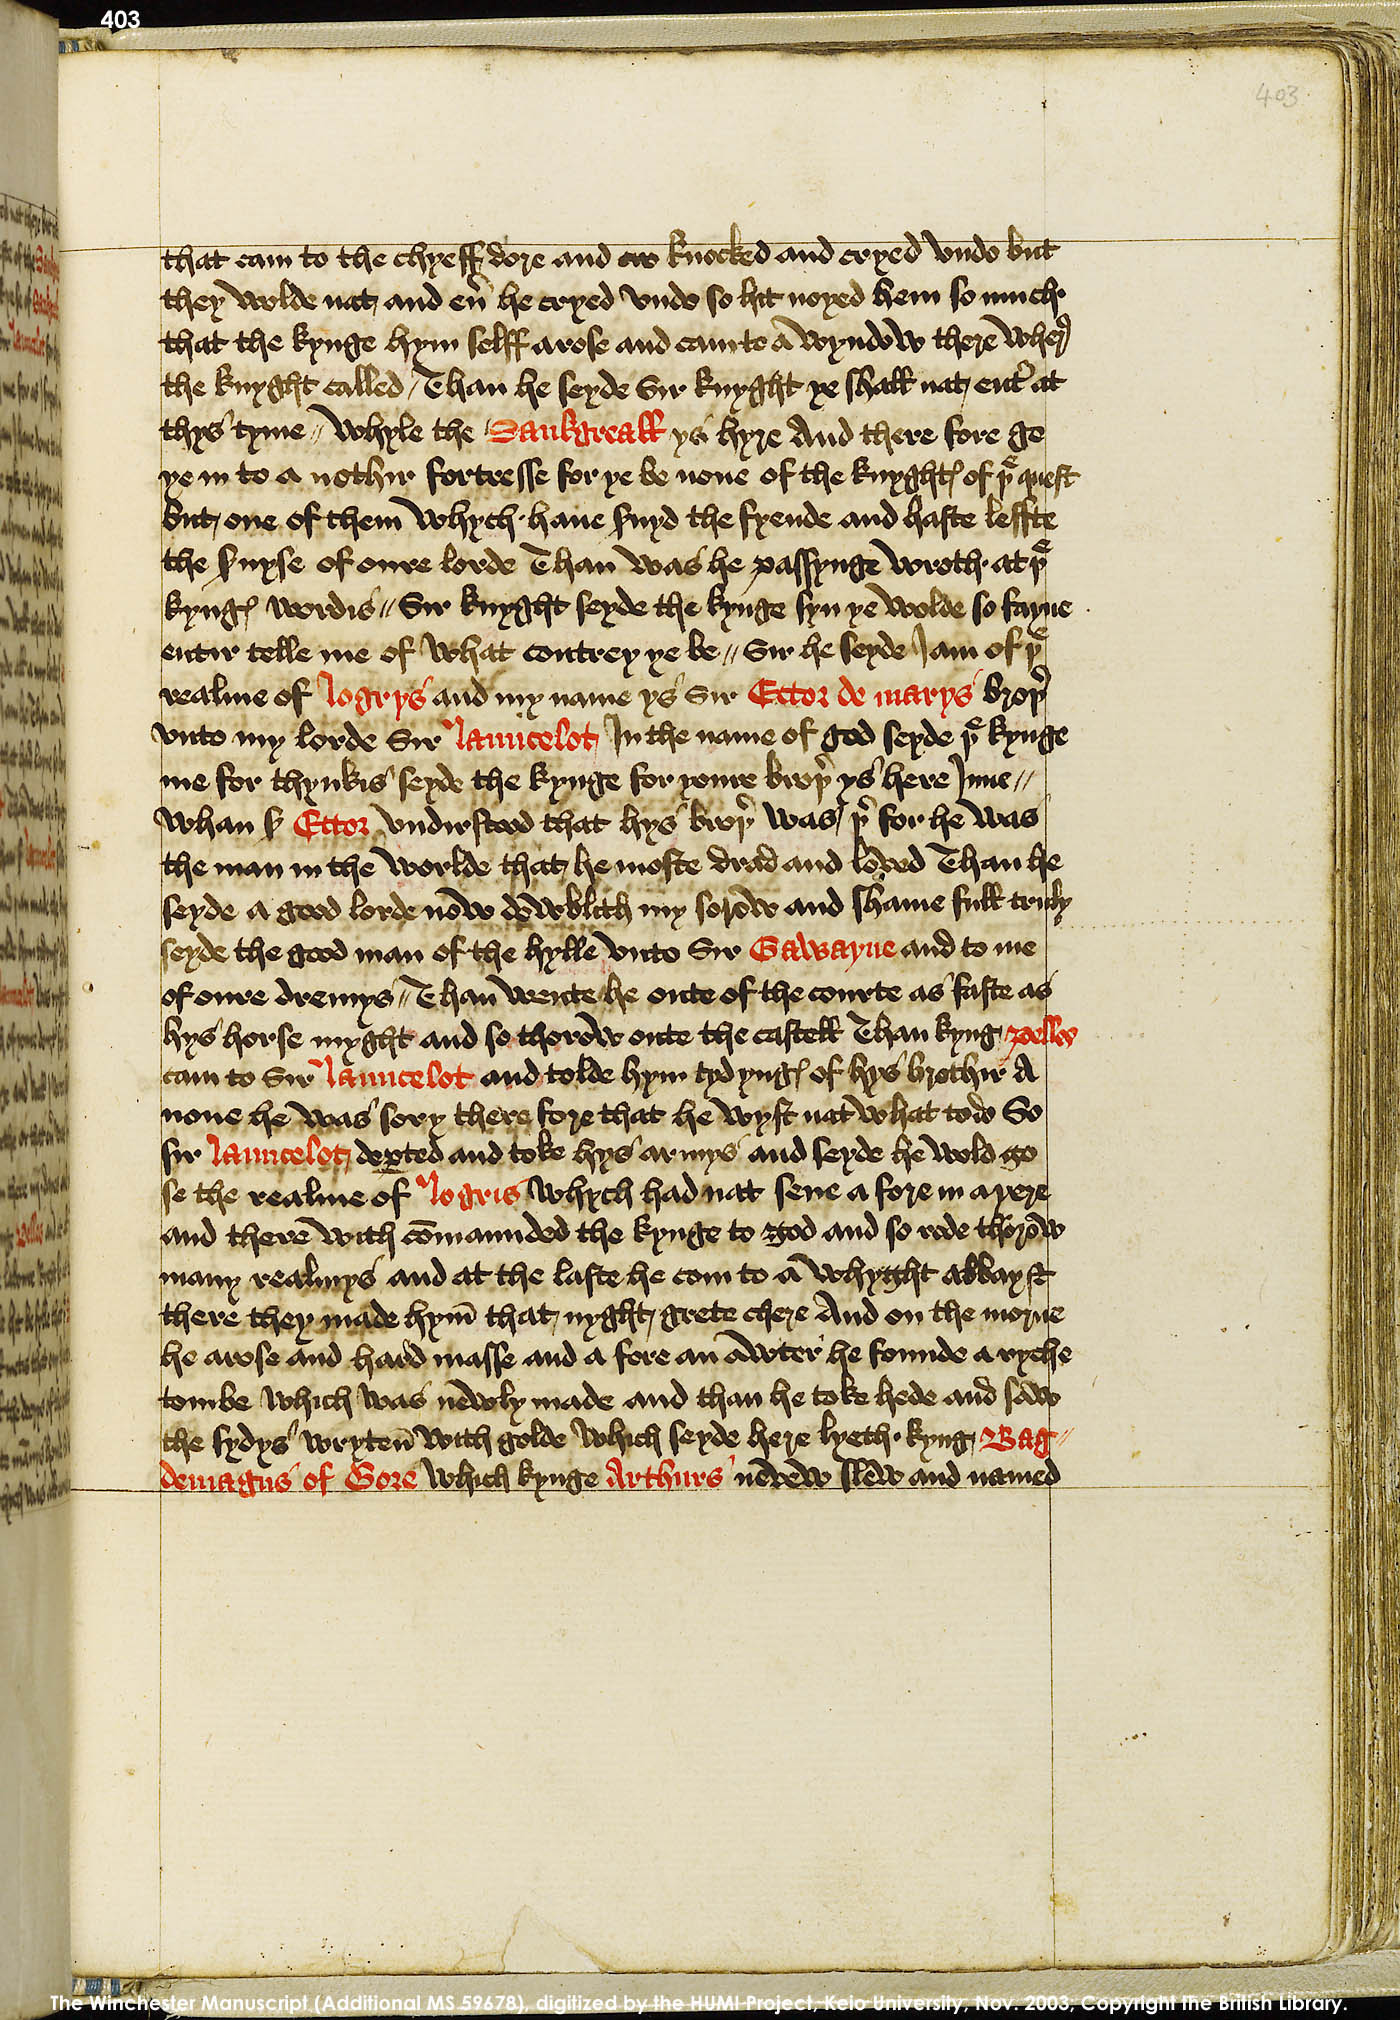 403
403
that cam to the chyeff dore and cr knocked and cryed vndo but
they wolde nat and eu͛ he cryed vndo so hit noyed hem so much
that the kynge hym selff arose and cam to a wyndow there where
the knyght called / Than he seyde Sir knyght ye shall nat ent͛ at
thys tyme // whyle the Sankgreall ys hyre And there fore go
ye in to a nothir fortresse for ye be none of the knyghtꝭ of þͤ quest
but one of them whych have s͛uyd the fyende and haste leffte
the s͛uyse of oure lorde Than was he passynge wroth at þͤ
kyngꝭ wordis // Sir knyght seyde the kynge syn ye wolde so fayne
entir telle me of what contrey ye be // Sir he seyde I am of þͤ
realme of logrys and my name ys Sir Ector de marys broþ͛
vnto my lorde Sir launcelot In the name of god seyde þͤ kynge
me for thynkis seyde the kynge for youre broþ͛ ys here Inne //
Whan ẞ Ector vndirstood that hys broþ͛ was þ͛ for he was
the man in the worlde that he moste drad and loved Than he
seyde a good lorde now dowblith my sorow and shame full truly
seyde the good man of the hylle vnto Sir Gawayne and to me
of oure dremys // Than wente he oute of the courte as faste as
hys horse myght and so thorow oute the castell Than kyng pelles
cam to Sir launcelot and tolde hym tydyngꝭ of hys brothir A
none he was sory there fore that he wyst nat what to do So
sir launcelot deꝑted and toke hys armys and seyde he wold go
se the realme of logris whych had nat sene a fore in a yere
and there with com̄aunded the kynge to god and so rode thorow
many realmys and at the laste he com to a whyght abbay &
there they made hym that nyght grete chere And on the morne
he arose and hard masse and a fore an awter he founde a ryche
tombe which was newly made and than he toke hede and saw
the sydys wryten with golde which seyde here lyeth kyng Bag-
demagus of Gore which kynge Arthurs nevew slew and named
The Winchester Manuscript (Additional MS 59678), digitized by the HUMI Project, Keio University, Nov. 2003, Copyright the British Library.